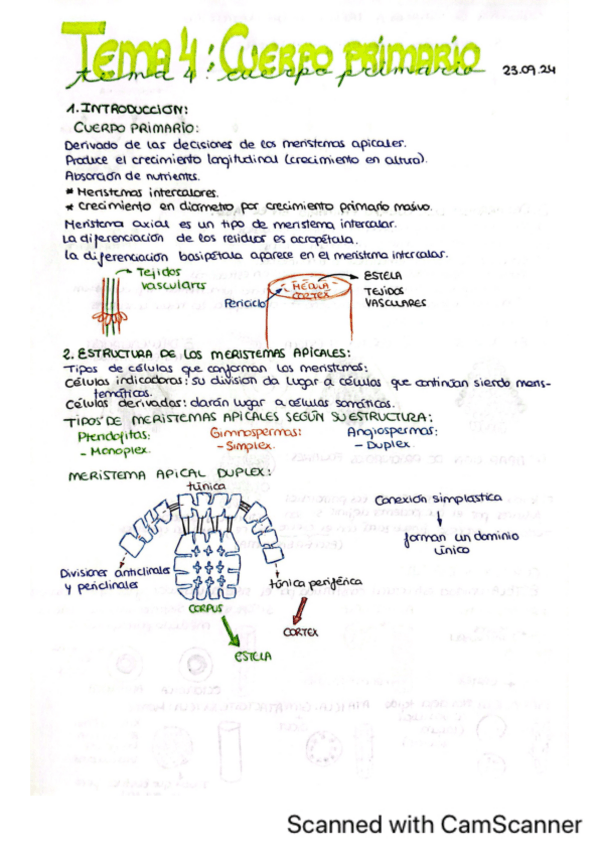 TEMA 4: CUERPO PRIMARIO
tema 4: cuerpo primario
23.09.24
1. INTRODUCCIÓN:
CUERPO PRIMARIO:
Derivado de las decisiones de los meristemas apicales.
Produce el crecimiento longitudinal (crecimiento en altura).
Absorción de nutrientes.
* Meristemas intercalares.
* Crecimiento en diámetro por crecimiento primario masivo.
Meristema axial es un tipo de meristema intercalar.
La diferenciación de los residuos es acropétala.
La diferenciación basipétala aparece en el meristema intercalar.
Tejidos
vasculares
Periciclo
MÉDULA
CORTEX
ESTELA
TEJIDOS
VASCULARES
2. ESTRUCTURA DE LOS MERISTEMAS APICALES:
Tipos de células que conforman los meristemas:
Células indicadoras: su división da lugar a células que continúan siendo meris-
temáticas.
Células derivadas: darán lugar a células somáticas.
TIPOS DE MERISTEMAS APICALES SEGÚN SU ESTRUCTURA:
Pteridofitas: Gimnospermas: Angiospermas:
- Monoplex. - Simplex. - Duplex.
MERISTEMA APICAL DUPLEX:
túnica
Conexión simplastica
forman un dominio
único
Divisiones anticlinales
y periclinales
túnica periférica
CORPUS
CORTEX
ESTELA
Scanned with CamScanner